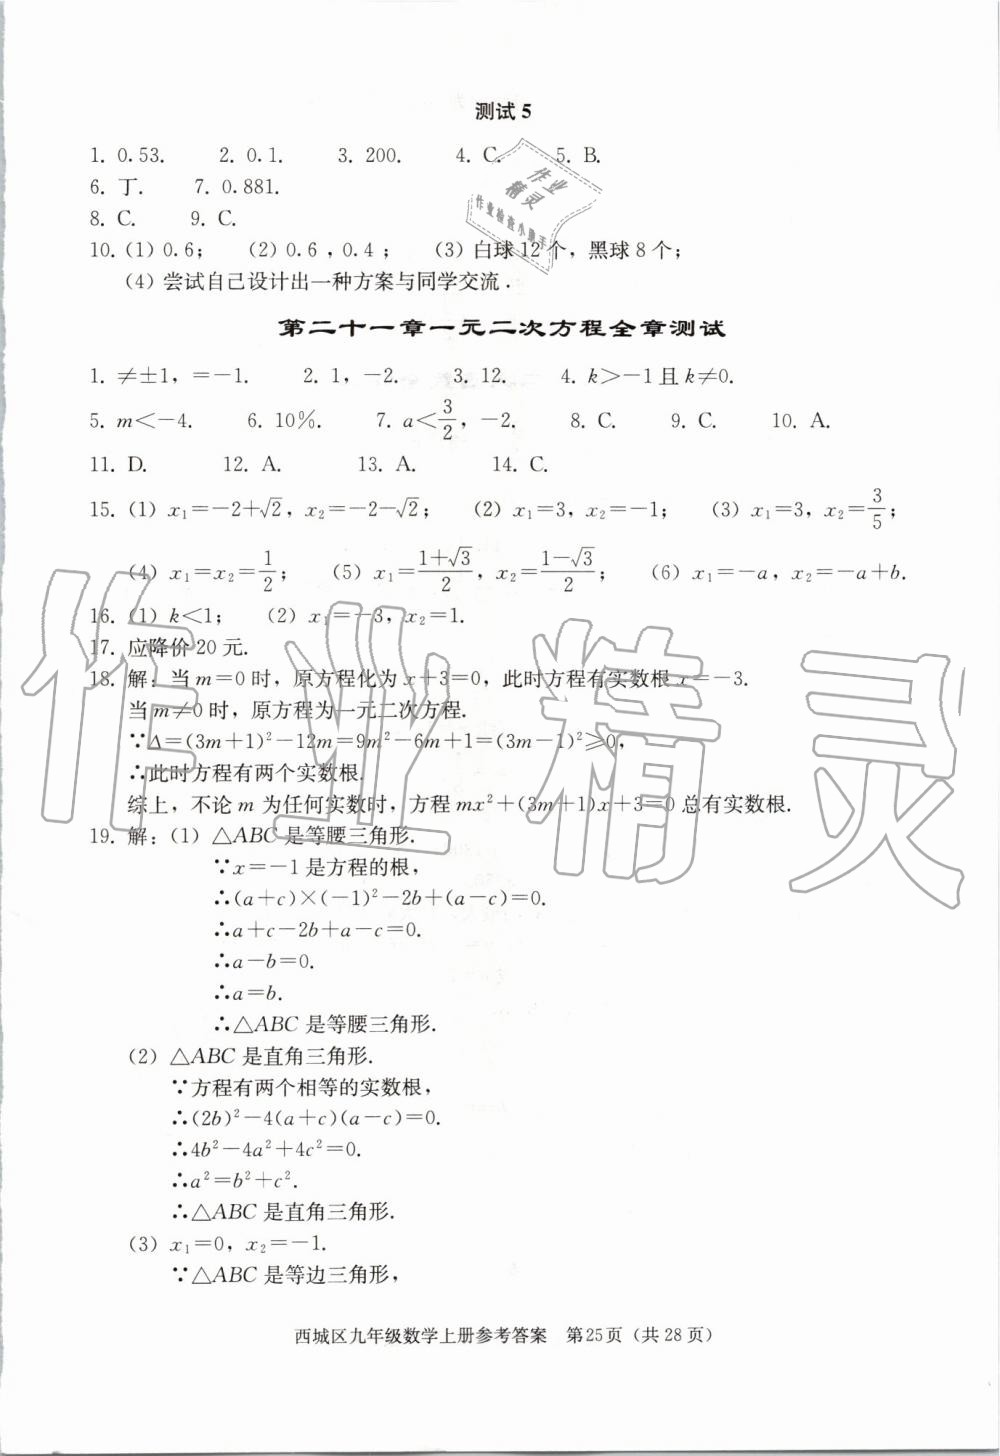 测试 5
1. 0.53. 2. 0.1. 3. 200. 4. C. 5. B.
6. 丁. 7. 0.881.
8. C. 9. C.
10. (1) 0.6; (2) 0.6 , 0.4 ; (3) 白球 12 个, 黑球 8 个;
(4) 尝试自己设计出一种方案与同学交流 .
作业
精灵
作业检查小助手
第二十一章一元二次方程全章测试
1. ≠±1, =-1. 2. 1, -2. 3. 12. 4. k>-1 且 k≠0.
5. m<-4. 6. 10%. 7. a<3/2, -2. 8. C. 9. C. 10. A.
11. D. 12. A. 13. A. 14. C.
15. (1) x₁=-2+√2, x₂=-2-√2; (2) x₁=3, x₂=-1; (3) x₁=3, x₂=3/5;
(4) x₁=x₂=1/2; (5) x₁=(1+√3)/2, x₂=(1-√3)/2; (6) x₁=-a, x₂=-a+b.
16. (1) k<1; (2) x₁=-3, x₂=1.
17. 应降价 20 元.
18. 解: 当 m=0 时, 原方程化为 x+3=0, 此时方程有实数根 x=-3.
当 m≠0 时, 原方程为一元二次方程.
∵Δ=(3m+1)²-12m=9m²-6m+1=(3m-1)²≥0,
∴此时方程有两个实数根.
综上, 不论 m 为任何实数时, 方程 mx²+(3m+1)x+3=0 总有实数根.
19. 解: (1) △ABC 是等腰三角形.
∵x=-1 是方程的根,
∴(a+c)×(-1)²-2b+(a-c)=0.
∴a+c-2b+a-c=0.
∴a-b=0.
∴a=b.
∴△ABC 是等腰三角形.
(2) △ABC 是直角三角形.
∵方程有两个相等的实数根,
∴(2b)²-4(a+c)(a-c)=0.
∴4b²-4a²+4c²=0.
∴a²=b²+c².
∴△ABC 是直角三角形.
(3) x₁=0, x₂=-1.
∵△ABC 是等边三角形,
作业精灵
西城区九年级数学上册参考答案 第25页 (共 28 页)